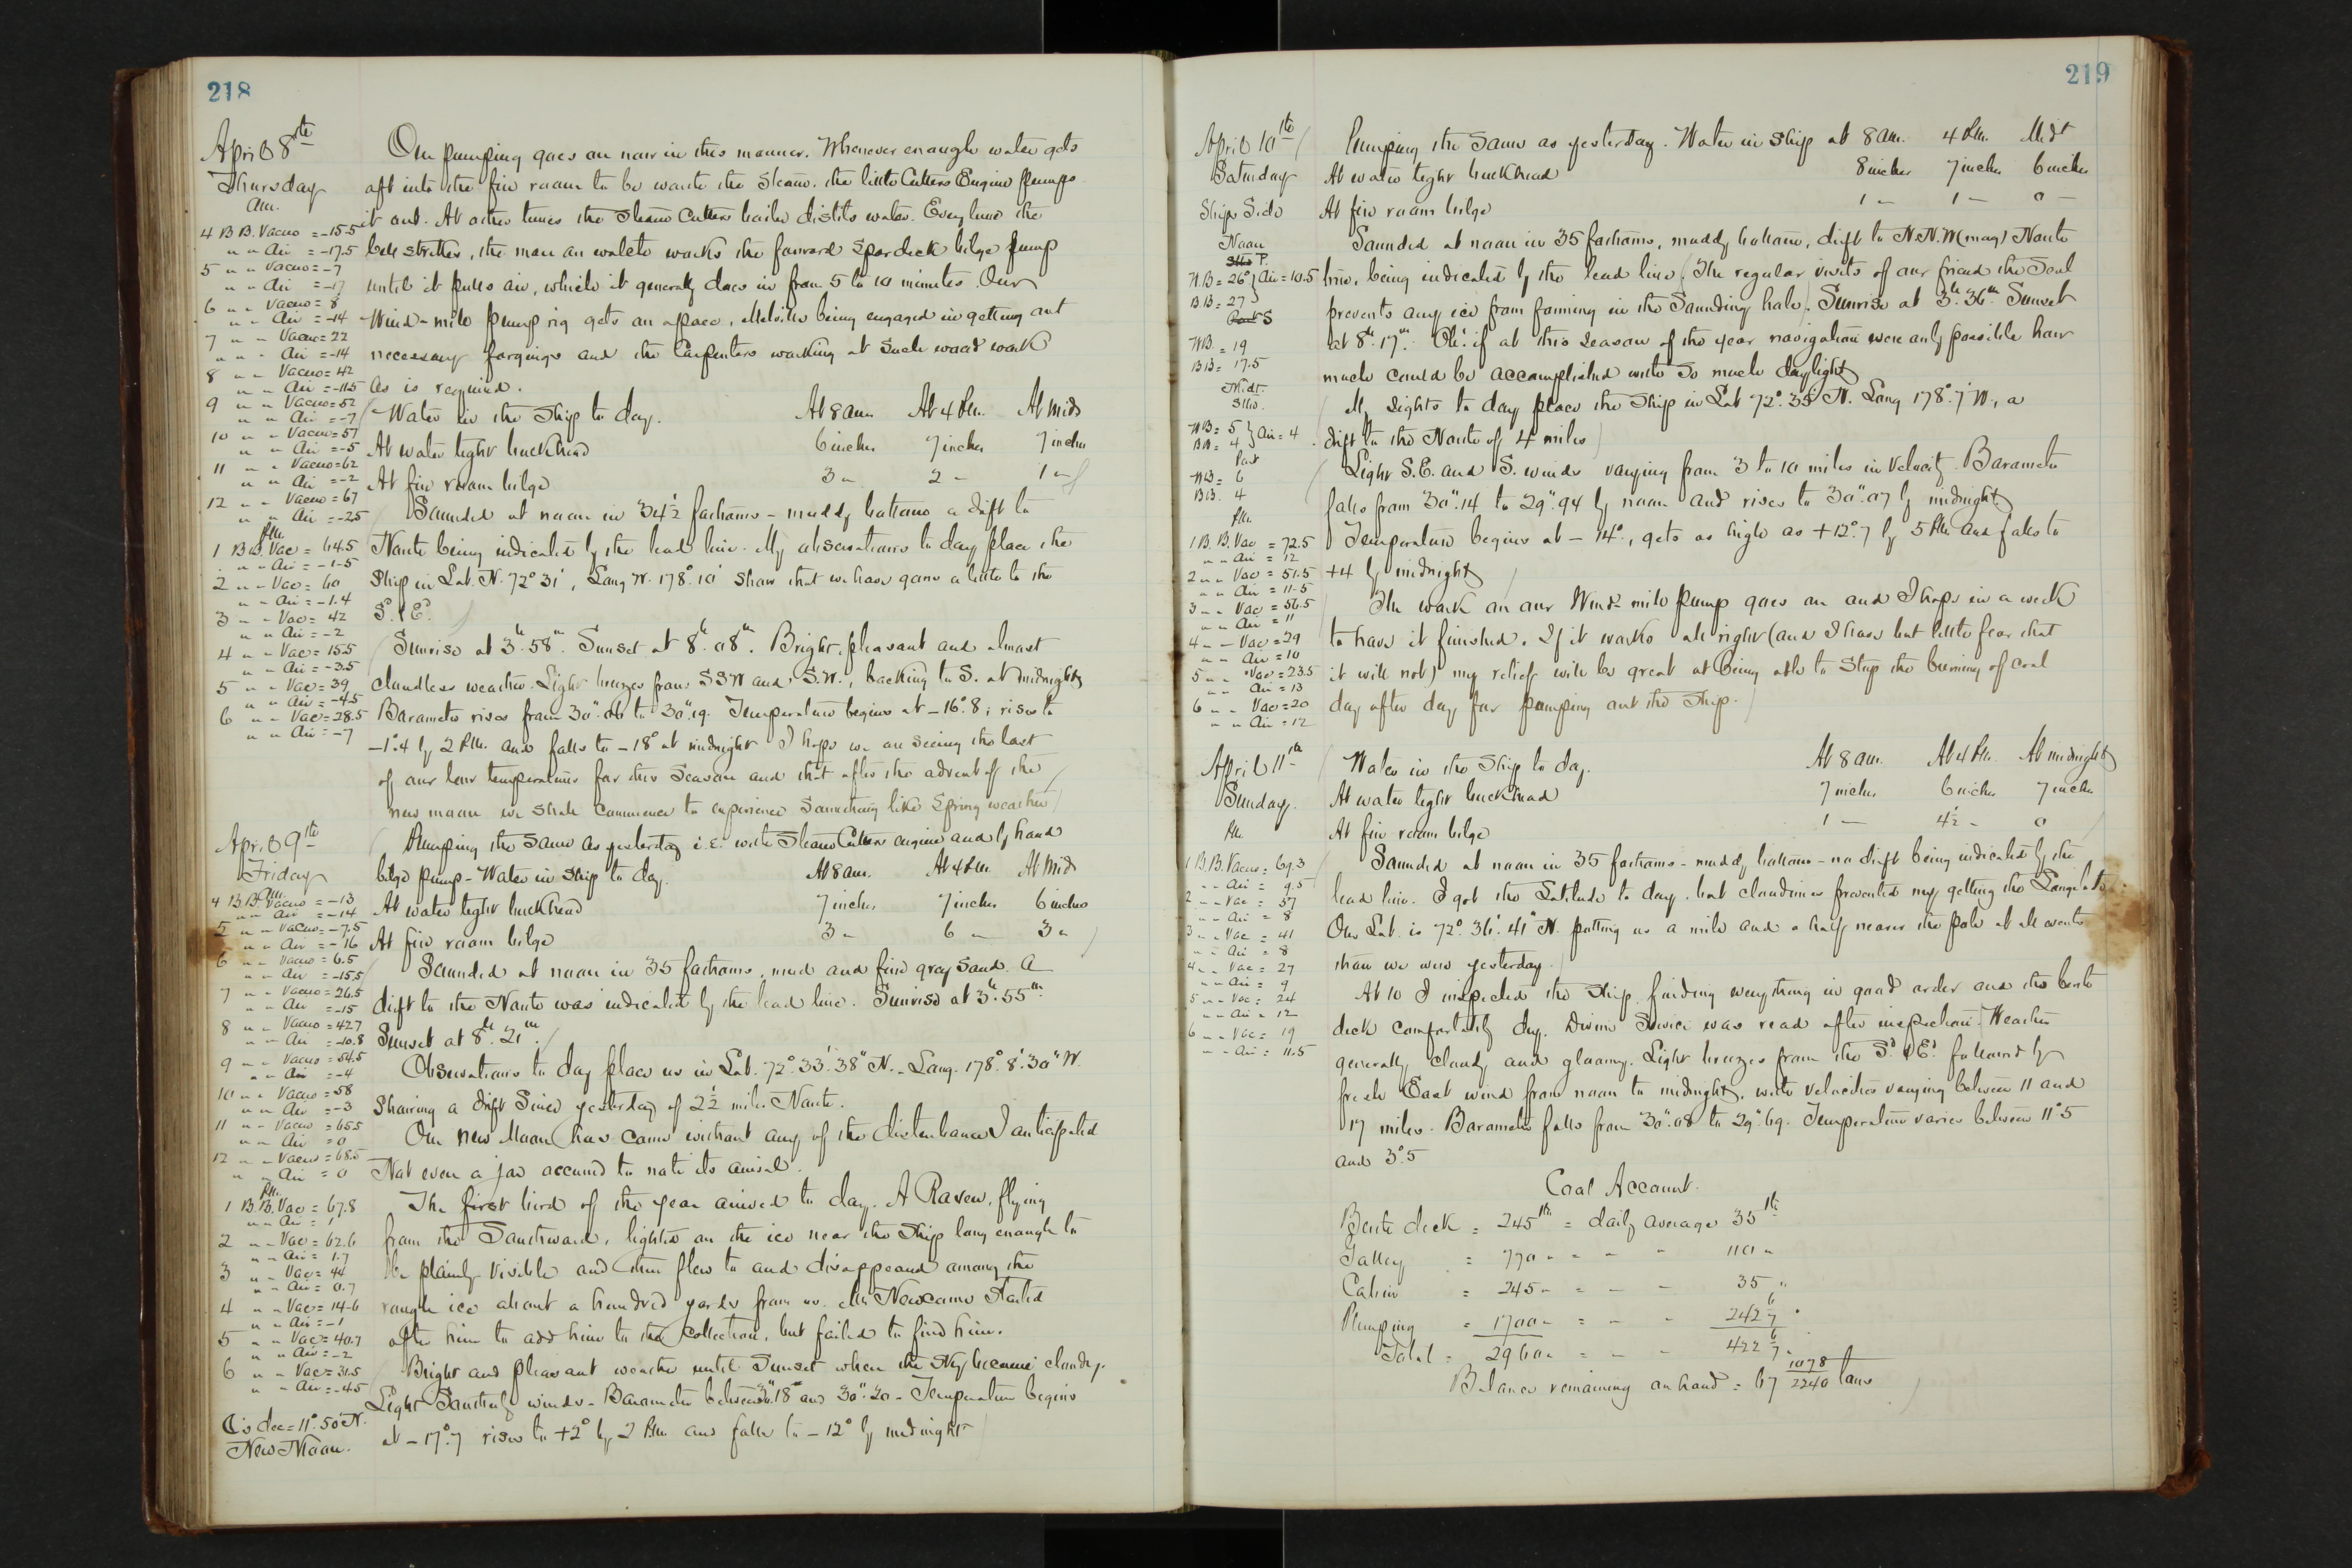 218
April 8th
Thursday
Our pumping goes on now in this manner. Whenever enough water gets
aft into the fire room to be worth the steam, the little Cutters Engine pumps
it out. At other times the Steam Cutters boiler distils water. Every hour the
bell strikes, the man on watch works the forward spardeck bilge pump
until it pulls air, which it generally does in from 5 to 10 minutes. Our
Wind-mill pump rig gets on apace, Melville being engaged in getting out
necessary forgings and the Carpenters working at such wood work
as is required.
Water in the Ship to day. At 8 am. At 4 P.M. At Mid
At water tight bulkhead 6 inches 7 inches 7 inches
At fire room bilge 3 " 2 " 1 "
Sounded at noon in 34½ fathoms - muddy bottom a drift to
North being indicated by the lead line. My observations to day place the
Ship in Lat. N. 72° 31', Long W. 178° 10' show that we have gone a little to the
Sd & Ed.
Sunrise at 3h 58m. Sunset at 8h 08m. Bright, pleasant and almost
cloudless weather. Light breezes from SSW and S.W., backing to S. at midnight
Barometer rises from 30".06 to 30".19. Temperature begins at -16°.8; rises to
-1°.4 by 2 P.M. and falls to -18° at midnight. I hope we are seeing the last
of our low temperatures for this Season and that after the advent of the
new moon we shall commence to experience something like Spring weather
am.
4 B B. Vacuo = -15.5
" " Air = -17.5
5 " " Vacuo = -7
" " Air = -17
6 " " Vacuo = 8
" " Air = -14
7 " " Vacuo = 22
" " Air = -14
8 " " Vacuo = 42
" " Air = -11.5
9 " " Vacuo = 52
" " Air = -7
10 " " Vacuo = 57
" " Air = -5
11 " " Vacuo = 62
" " Air = -2
12 " " Vacuo = 67
" " Air = -2.5
P.M.
1 B B. Vac = 64.5
" " Air = -1.5
2 " " Vac = 60
" " Air = -1.4
3 " " Vac = 42
" " Air = -2
4 " " Vac = 15.5
" " Air = -3.5
5 " " Vac = 39
" " Air = -4.5
6 " " Vac = 28.5
" " Air = -7
April 9th
Friday
Pumping the same as yesterday i.e. with Steam Cutter engine and by hand
bilge pump - Water in Ship to day. At 8 am. At 4 P.M. At Mid
At water tight bulkhead 7 inches 7 inches 6 inches
At fire room bilge 3 " 6 " 3 "
Sounded at noon in 35 fathoms, mud and fine gray sand. A
drift to the North was indicated by the lead line. Sunrise at 3h. 55m.
Sunset at 8h. 21m.
Observations to day place us in Lat. 72° 33' 38" N. - Long. 178° 8' 30" W.
Showing a drift since yesterday of 2½ miles North.
Our new Moon has come without any of the disturbance I anticipated
Not even a jar occurred to note its arrival.
The first bird of the year arrived to day. A Raven, flying
from the Southward, lighted on the ice near the Ship long enough to
be plainly visible and then flew to and disappeared among the
rough ice about a hundred yards from us. Mr Newcomb started
after him to add him to the collection, but failed to find him.
Bright and pleasant weather until Sunset when the Sky became cloudy.
Light Southerly winds - Barometer between 30".18 and 30".20 - Temperature begins
at -17°.7 rises to +2° by 2 P.M. and falls to -12° by midnight
am.
4 B.B. Vacuo = -13
" " Air = -14
5 " " Vacuo = -7.5
" " Air = -16
6 " " Vacuo = 6.5
" " Air = -15.5
7 " " Vacuo = 26.5
" " Air = -15
8 " " Vacuo = 42.7
" " Air = -10.8
9 " " Vacuo = 54.5
" " Air = -4
10 " " Vacuo = 58
" " Air = -3
11 " " Vacuo = 65.5
" " Air = 0
12 " " Vacuo = 68.5
" " Air = 0
P.M.
1 B.B. Vac = 67.8
" " Air = 1
2 " " Vac = 62.6
" " Air = 1.7
3 " " Vac = 44
" " Air = 0.7
4 " " Vac = 14.6
" " Air = -1
5 " " Vac = 40.7
" " Air = -2
6 " " Vac = 31.5
" " Air = -4.5
☾'s dec = 11° 50' N.
New Moon.
219
April 10th
Saturday
Pumping the same as yesterday. Water in Ship at 8 am. 4 P.M. Mid't
At water tight bulkhead 8 inches 7 inches 6 inches
At fire room bilge 1 " 1 " 0 "
Sounded at noon in 35 fathoms, muddy bottom, drift to N.N.W (mag) North
true, being indicated by the lead line (The regular visits of our friend the Seal
prevents any ice from forming in the Sounding hole). Sunrise at 3h. 36m. Sunset
at 8h. 17m. Oh! if at this season of the year navigation were only possible how
much could be accomplished with so much daylight
My sights to day place the Ship in Lat 72° 35' N. Long 178° 7' W., a
drift to the North of 4 miles
Light S.E. and S. winds varying from 3 to 10 miles in Velocity. Barometer
falls from 30".14 to 29".94 by noon and rises to 30".07 by midnight
Temperature begins at -14°, gets as high as +12°.7 by 5 P.M. and falls to
+4 by midnight
The work on our Wind-mill pump goes on and I hope in a week
to have it finished. If it works all right (and I have but little fear that
it will not) my relief will be great at being able to stop the burning of coal
day after day for pumping out the Ship.
Ships Side
Noon
P.
W.B = 26° } Air = 10.5
B B = 27
S
W.B. = 19
B B = 17.5
Midt.
Stbd.
W B = 5 } Air = 4
B B = 4
Port
W B = 6
B B. 4
P.M.
1 B. B. Vac = 72.5
" " Air = 12
2 " " Vac = 51.5
" " Air = 11.5
3 " " Vac = 56.5
" " Air = 11
4 " " Vac = 29
" " Air = 10
5 " " Vac = 23.5
" " Air = 13
6 " " Vac = 20
" " Air = 12
April 11th
Sunday.
Water in the Ship to day. At 8 am. At 4 P.M. At midnight
At water tight bulkhead 7 inches 6 inches 7 inches
At fire room bilge 1 " 4½ " 0
Sounded at noon in 35 fathoms - muddy bottom - no drift being indicated by the
lead line. I got the Latitude to day, but cloudiness prevented my getting the Longitude.
Our Lat. is 72°. 36'. 41" N. putting us a mile and a half nearer the pole at all events
than we were yesterday.
At 10 I inspected the Ship finding everything in good order and the berth
deck comfortably dry. Divine Service was read after inspection. Weather
generally cloudy and gloomy. Light breezes from the Sd & Ed. followed by
fresh East wind from noon to midnight, with velocities varying between 11 and
17 miles. Barometer falls from 30".08 to 29".69. Temperature varies between 11°.5
and 3°.5
P.M.
1 B.B. Vacuo = 69.3
" " Air = 9.5
2 " " Vac = 57
" " Air = 8
3 " " Vac = 41
" " Air = 8
4 " " Vac = 27
" " Air = 9
5 " " Vac = 24
" " Air = 12
6 " " Vac = 19
" " Air = 11.5
Coal Account.
Berth deck = 245 lbs = daily average 35 lbs
Galley = 770 " " " " 110 "
Cabin = 245 " " " " 35 "
Pumping = 1700 " = " " 242 6/7 "
Total = 2960 " = " " 422 6/7 "
Balance remaining on hand = 67 1078/2240 tons